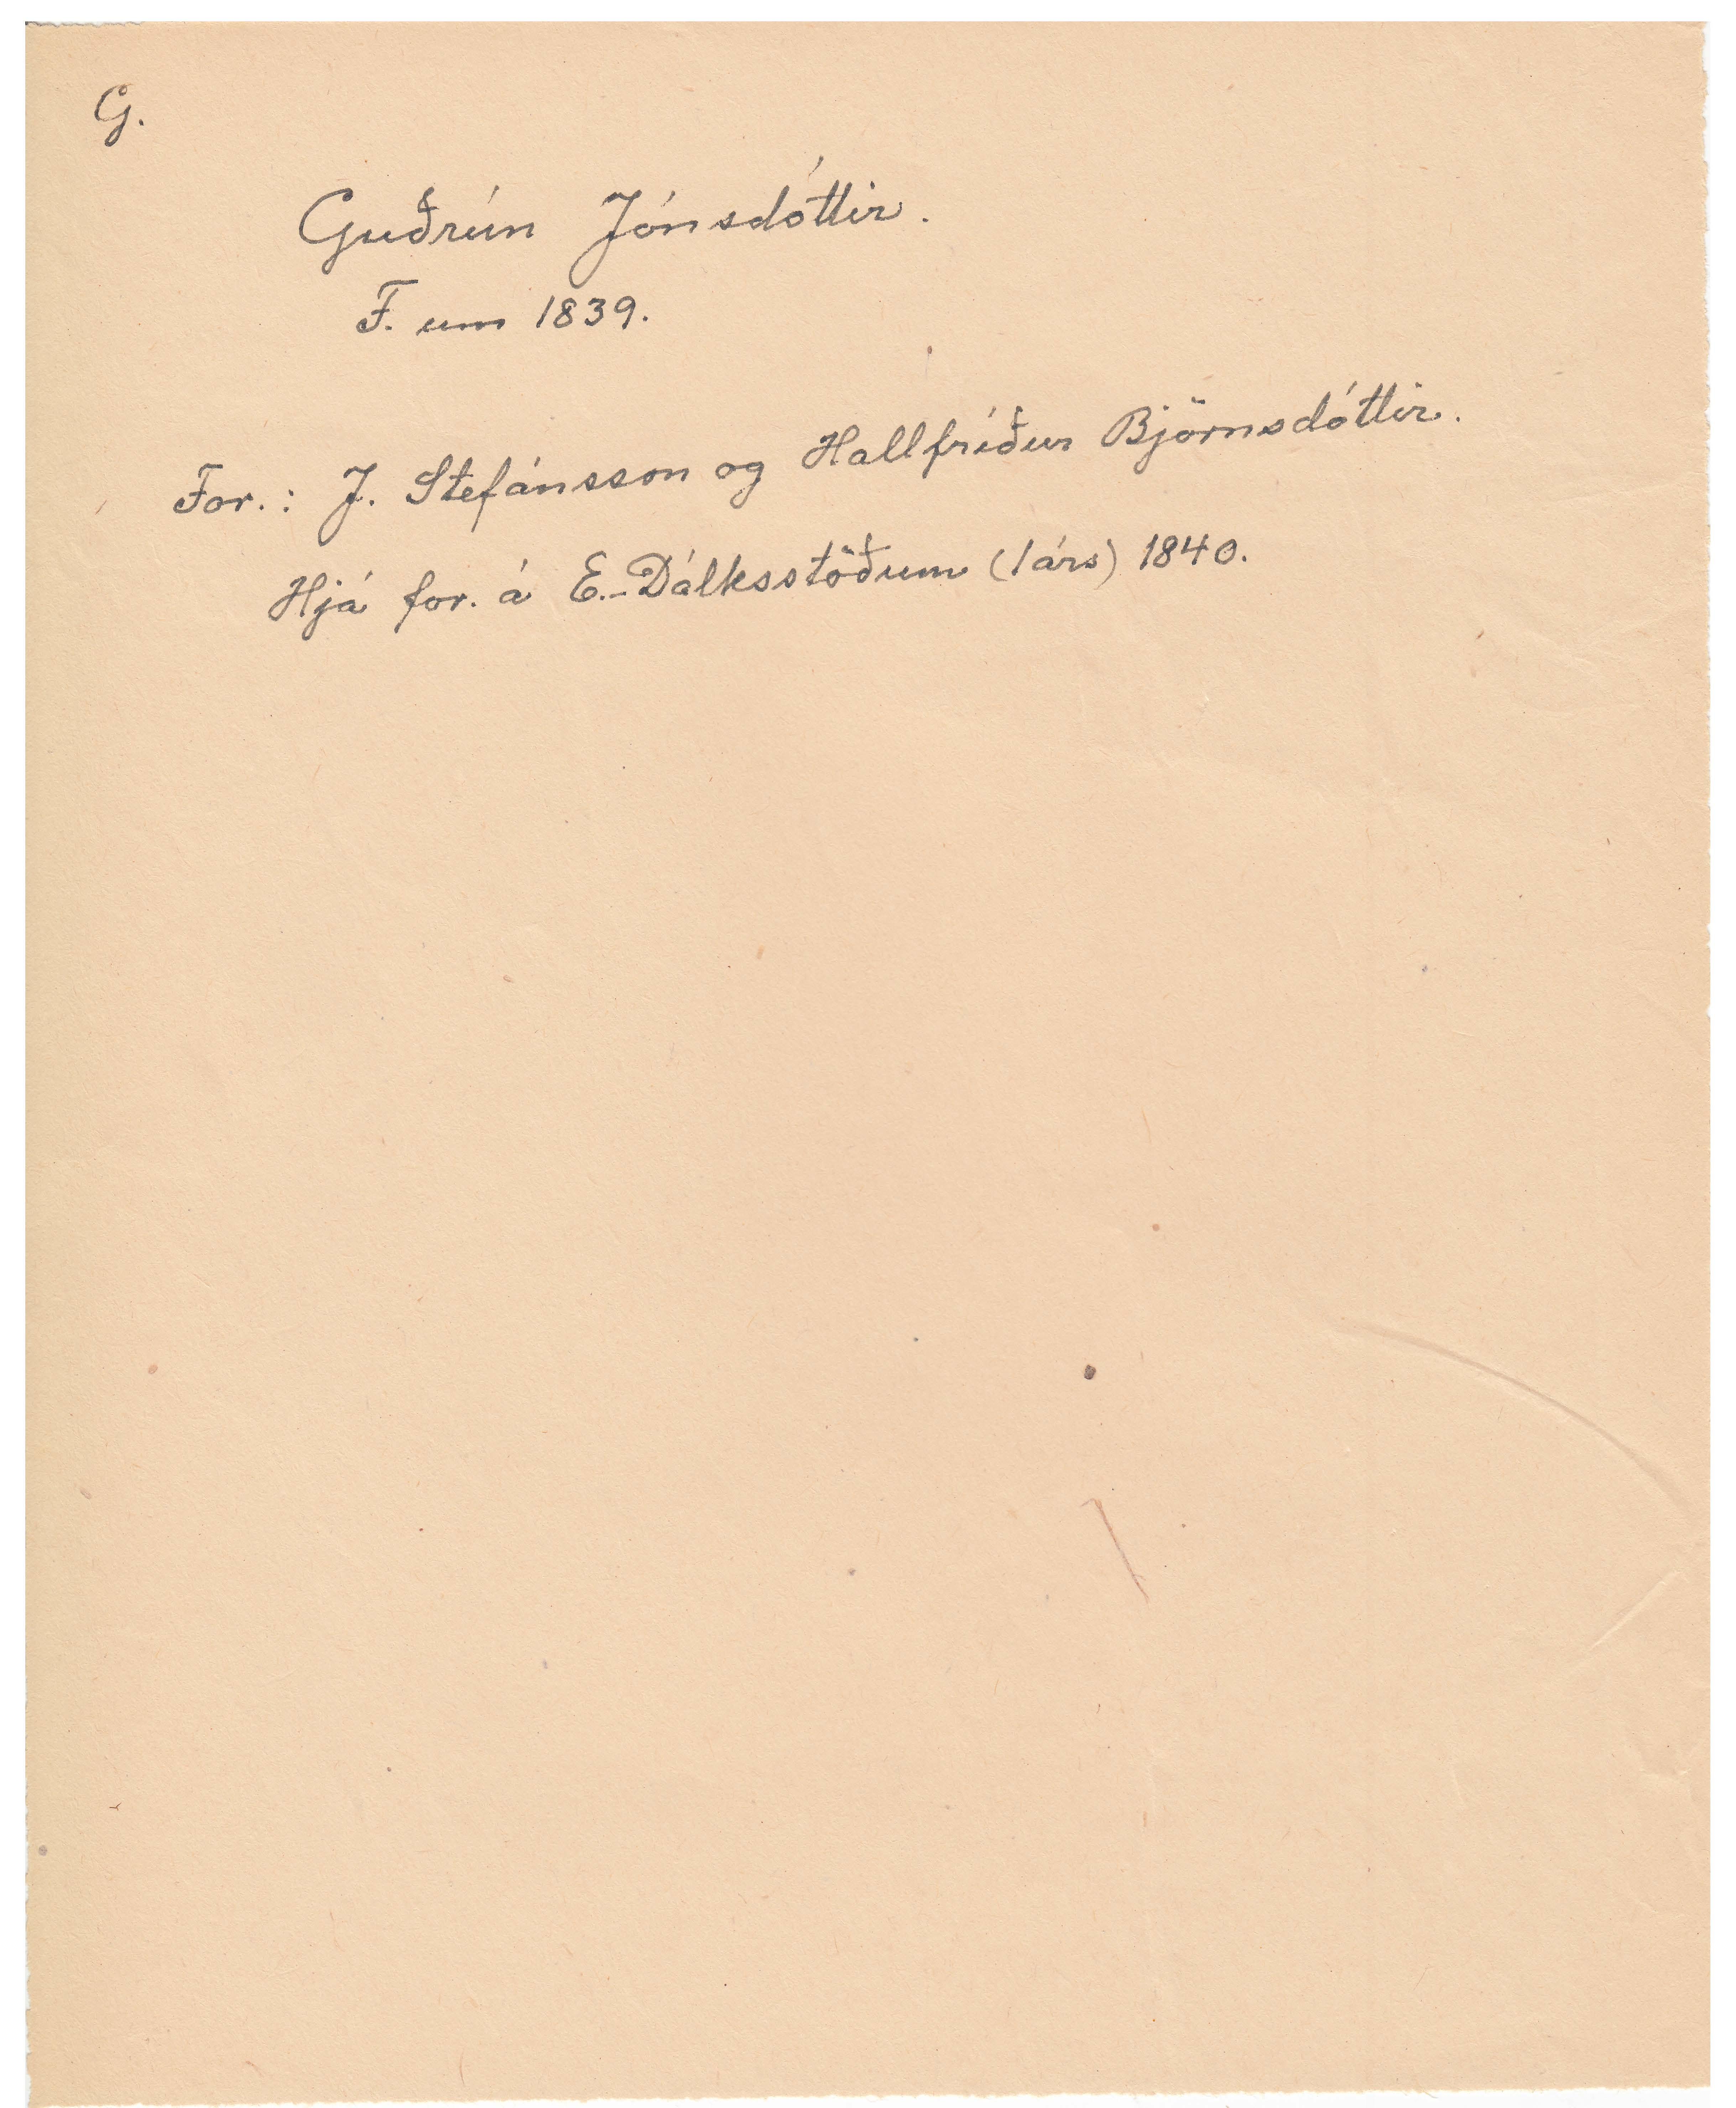 G.
Guðrún Jónsdóttir.
F. um 1839.
For.: J. Stefánsson og Hallfríður Björnsdóttir.
Hjá for. á E.-Dálksstöðum (1 árs) 1840.